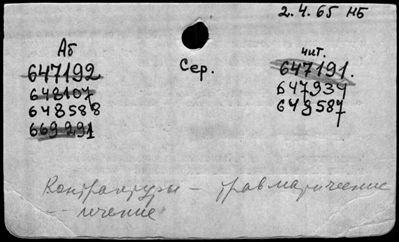 2.4.65 НБ
Аб
647192
648107
648588
669291
Сер.
чит.
647191.
647934
648587
Контрактуры – травматические
– лечение